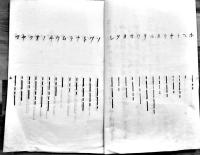 ホ ヘ ト チ リ ヌ ル ヲ ワ カ ヨ タ レ
ソ ツ ネ ナ ラ ム ウ ヰ ノ オ ク ヤ マ